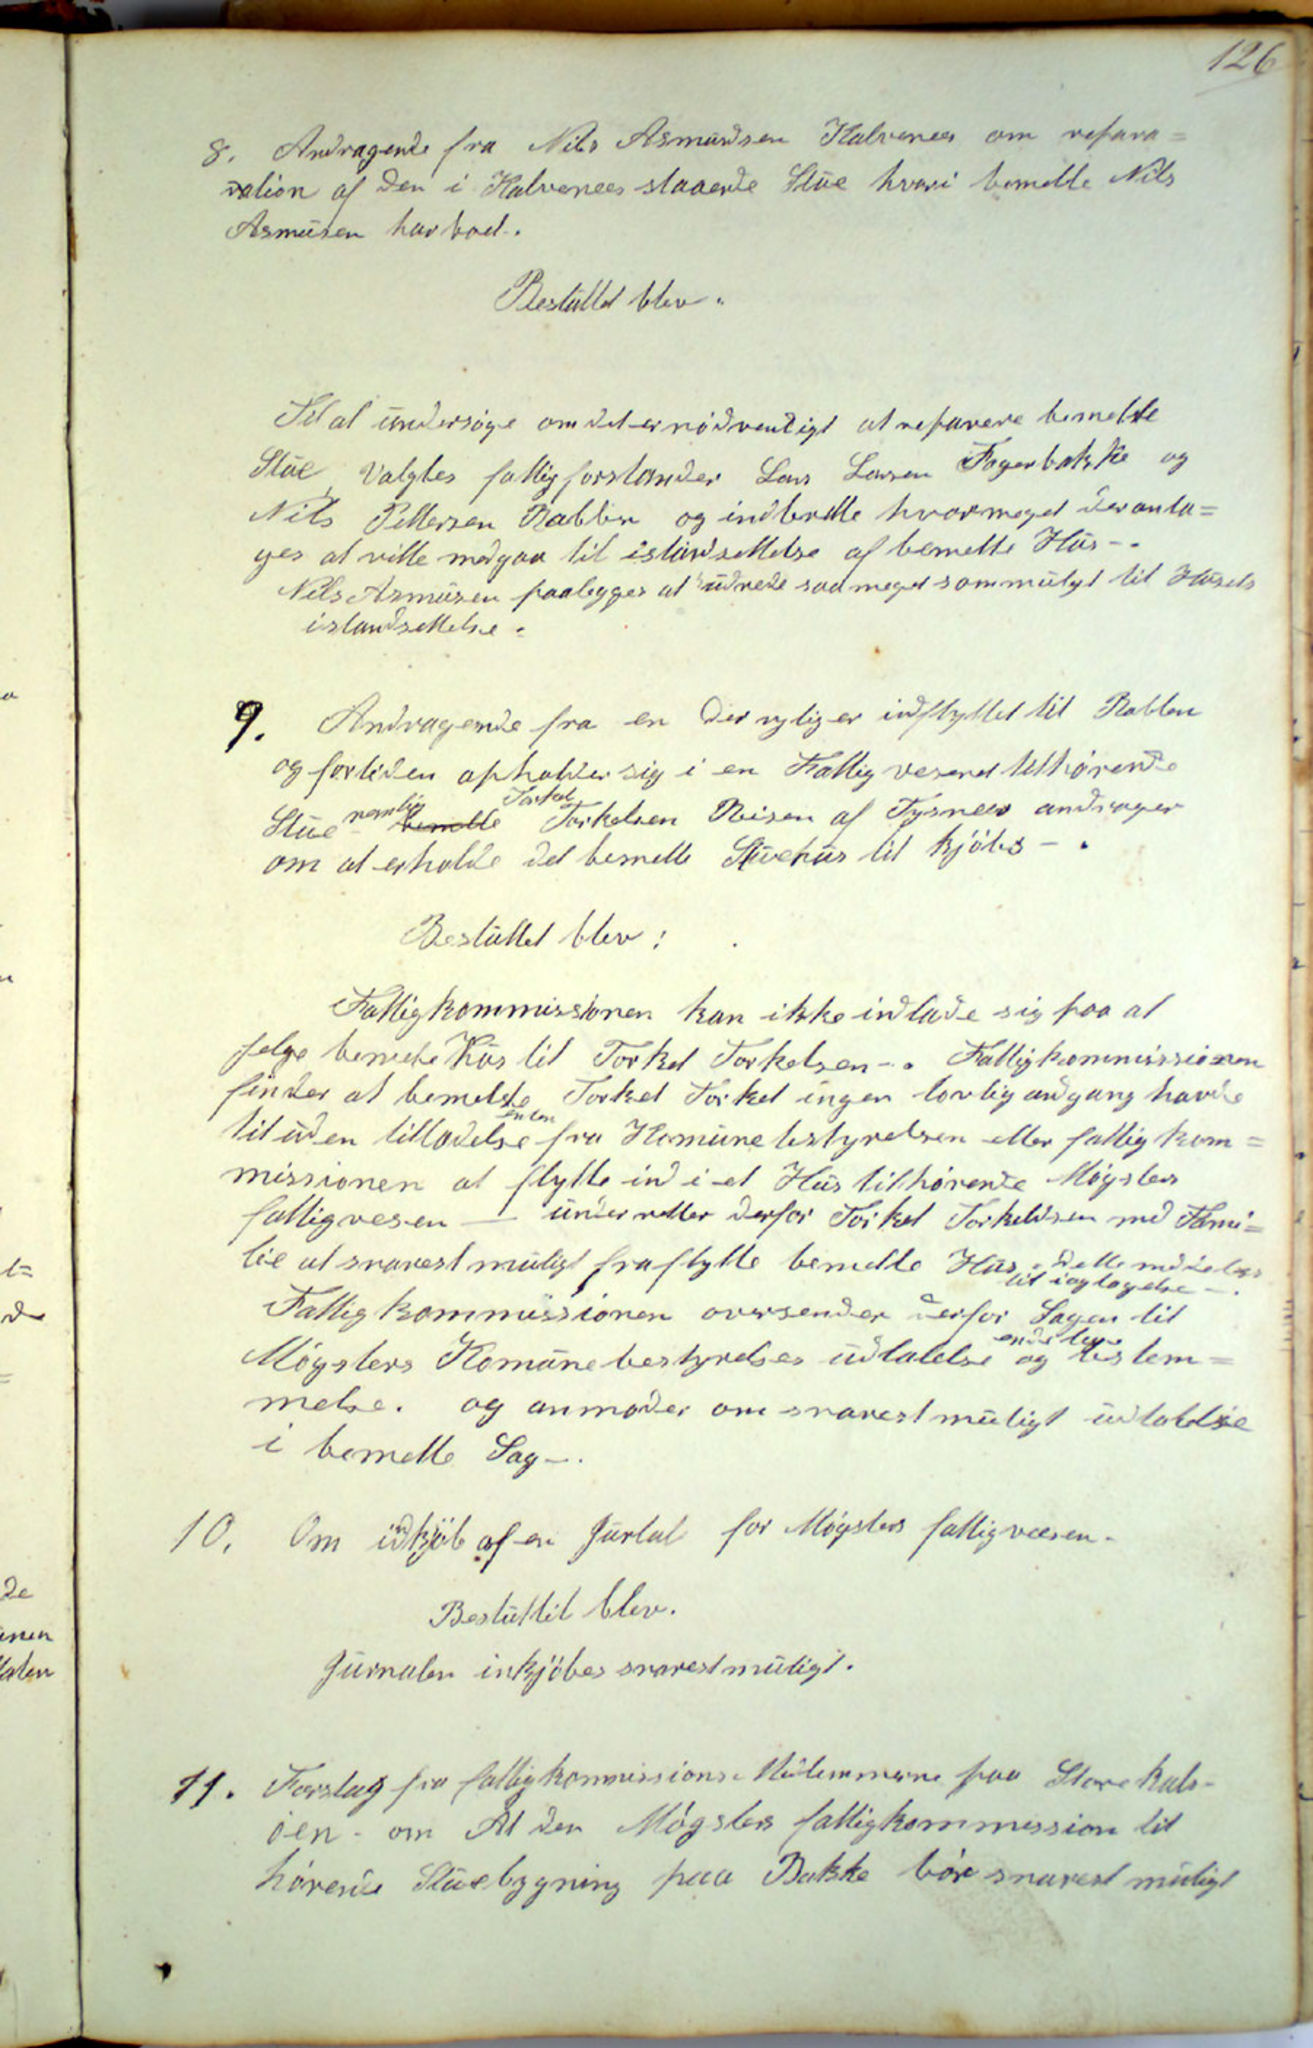 126
8. Andragende fra Nils Asmundsen Halvenes om repara=
ration af den i Halvenees staaende Stue hvori bemelte Nils
Asmusen har boed.
Besluttet blev.
Til at undersøge om det er nødvendigt at reparere bemelte
Stue, Valgtes fattigforstander Lars Larsen Fagerbakke og
Nils Pettersen Rabben og indberette hvormeget der anta=
ges at ville medgaa til istandsettelse af bemelte Hus -.
Nils Asmusen paalegges at udrede saa meget som muligt til Husets
istandsettelse.
9. Andragende fra en der nylig er indflyttet til Rabben
og fortiden opholder sig i en Fattigvesenet tilhørende
Stue nemlig bemelte Torkel Torkelsen Reisen af Tysnees andrager
om at erholde det bemelte Stuehus til kjøbs -.
Besluttet blev:
Fattigkommissionen kan ikke indlade sig paa at
selge bemelte Hus til Torkel Torkelsen -. Fattigkommissionen
finder at bemelte Torkel Torkel ingen lovlig adgang havde
til uden tilladelse enten fra Komunebestyrelsen eller fattigkom=
missionen at flytte ind i et Hus tilhørende Møgsters
fattigvesen — underretter derfor Torkel Torkelsen med Fami=
lie at snarest muligt fraflytte bemelte Hus. Dette meddeles
til iagtagelse -.
Fattigkommissionen oversender derfor Sagen til
Møgsters Komunebestyrelses udtalelse og endelige bestem=
melse. og anmoder om snarest muligt udtalelse
i bemelte Sag -.
10. Om indkjøb af en Jurtal for Møgsters fattigvæsen -
Besluttit blev.
Jurnalen inkjøbes snarest muligt.
11. Forslag fra fattigkommissions Medlemmerne paa Storekals-
øen - om At den Møgsters fattigkommission til
hørende Stuebygning paa Bakke bør snarest muligt